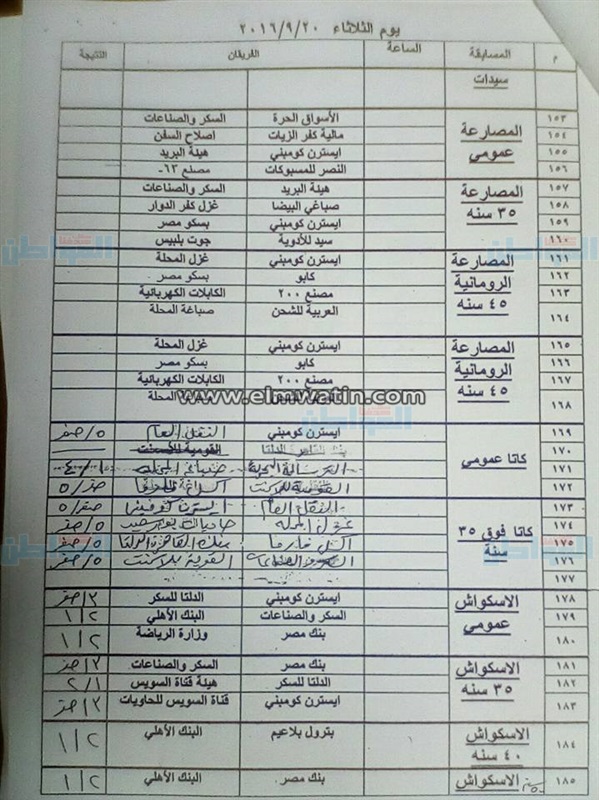 يوم الثلاثاء ٢٠١٦/٩/٢٠
م المسابقة الساعة الفريقان النتيجة
سيدات
١٥٣ المصارعة عمومي الأسواق الحرة السكر والصناعات
١٥٤ مالية كفر الزيات اصلاح السفن
١٥٥ ايسترن كومبني هيئة البريد
١٥٦ النصر للمسبوكات مصنع ٦٣-
١٥٧ المصارعة ٣٥ سنه هيئة البريد السكر والصناعات
١٥٨ صباغي البيضا غزل كفر الدوار
١٥٩ ايسترن كومبني بسكو مصر
١٦٠ سيد للأدوية جوت بلبيس
١٦١ المصارعة الرومانية ٤٥ سنه ايسترن كومبني غزل المحلة
١٦٢ كابو بسكو مصر
١٦٣ مصنع ٢٠٠ الكابلات الكهربائية
١٦٤ العربية للشحن صباغة المحلة
١٦٥ المصارعة الرومانية ٤٥ سنه ايسترن كومبني غزل المحلة
١٦٦ كابو بسكو مصر
١٦٧ مصنع ٢٠٠ الكابلات الكهربائية
١٦٨ المحلة
www.elmwatin.com
١٦٩ كاتا عمومي ايسترن كومبني النقل العام ٥/صفر
١٧٠ الدلتا القومية للأسمنت
١٧١
١٧٢ صفر/٥
١٧٣ كاتا فوق ٣٥ سنة النقل العام ايسترن كومبني صفر/٥
١٧٤ غزل المحله ٥/صفر
١٧٥ ٥/صفر
١٧٦ القومية للاسمنت ٥/صفر
١٧٧
١٧٨ الاسكواش عمومي ايسترن كومبني الدلتا للسكر ٣/صفر
١٧٩ السكر والصناعات البنك الأهلي ١/٢
١٨٠ بنك مصر وزارة الرياضة ١/٢
١٨١ الاسكواش ٣٥ سنه بنك مصر السكر والصناعات ٣/صفر
١٨٢ الدلتا للسكر هيئة قناة السويس ٢/١
١٨٣ ايسترن كومبني قناة السويس للحاويات ٣/صفر
١٨٤ الاسكواش ٤٠ سنه بترول بلاعيم البنك الأهلي ١/٢
١٨٥ الاسكواش بنك مصر البنك الأهلي ١/٢
المواطن